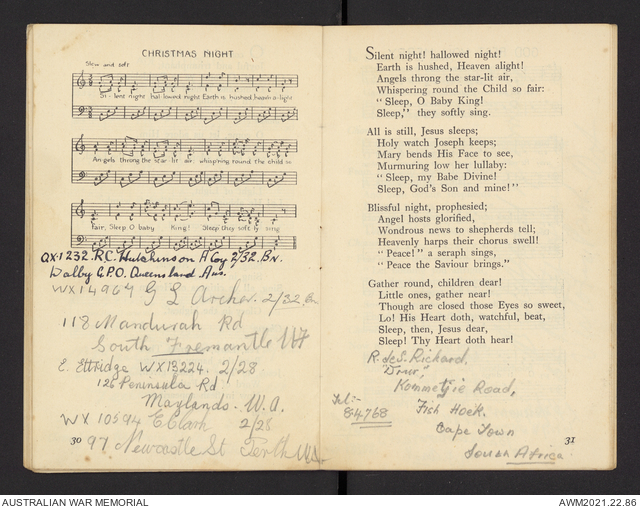 CHRISTMAS NIGHT
Slow and soft
Si-lent night hal-lowed night Earth is hushed, heav'n a-light
Angels throng the star-lit air whisp'ring round the child so
fair, Sleep O baby King! Sleep they softly sing
QX1232. R.C. Hutchinson A Coy 2/32. Bn.
Dalby G.P.O. Queensland Aus.
WX14964 G L Archer. 2/32. Bn
118 Mandurah Rd
South Fremantle WA
E. Ettridge WX13224. 2/28
126 Peninsula Rd
Maylands. W.A.
WX 10594 E Clark 2/28
30 97 Newcastle St Perth WA.
Silent night! hallowed night!
Earth is hushed, Heaven alight!
Angels throng the star-lit air,
Whispering round the Child so fair:
“ Sleep, O Baby King!
Sleep,” they softly sing.
All is still, Jesus sleeps;
Holy watch Joseph keeps;
Mary bends His Face to see,
Murmuring low her lullaby:
“ Sleep, my Babe Divine!
Sleep, God's Son and mine!”
Blissful night, prophesied;
Angel hosts glorified,
Wondrous news to shepherds tell;
Heavenly harps their chorus swell!
“ Peace!” a seraph sings,
“ Peace the Saviour brings.”
Gather round, children dear!
Little ones, gather near!
Though are closed those Eyes so sweet,
Lo! His Heart doth, watchful, beat,
Sleep, then, Jesus dear,
Sleep! Thy Heart doth hear!
R. de S. Richard.
Kommetjie Road,
Tel:-
84768
Fish Hoek.
Cape Town
South Africa
31
AUSTRALIAN WAR MEMORIAL
AWM2021.22.86